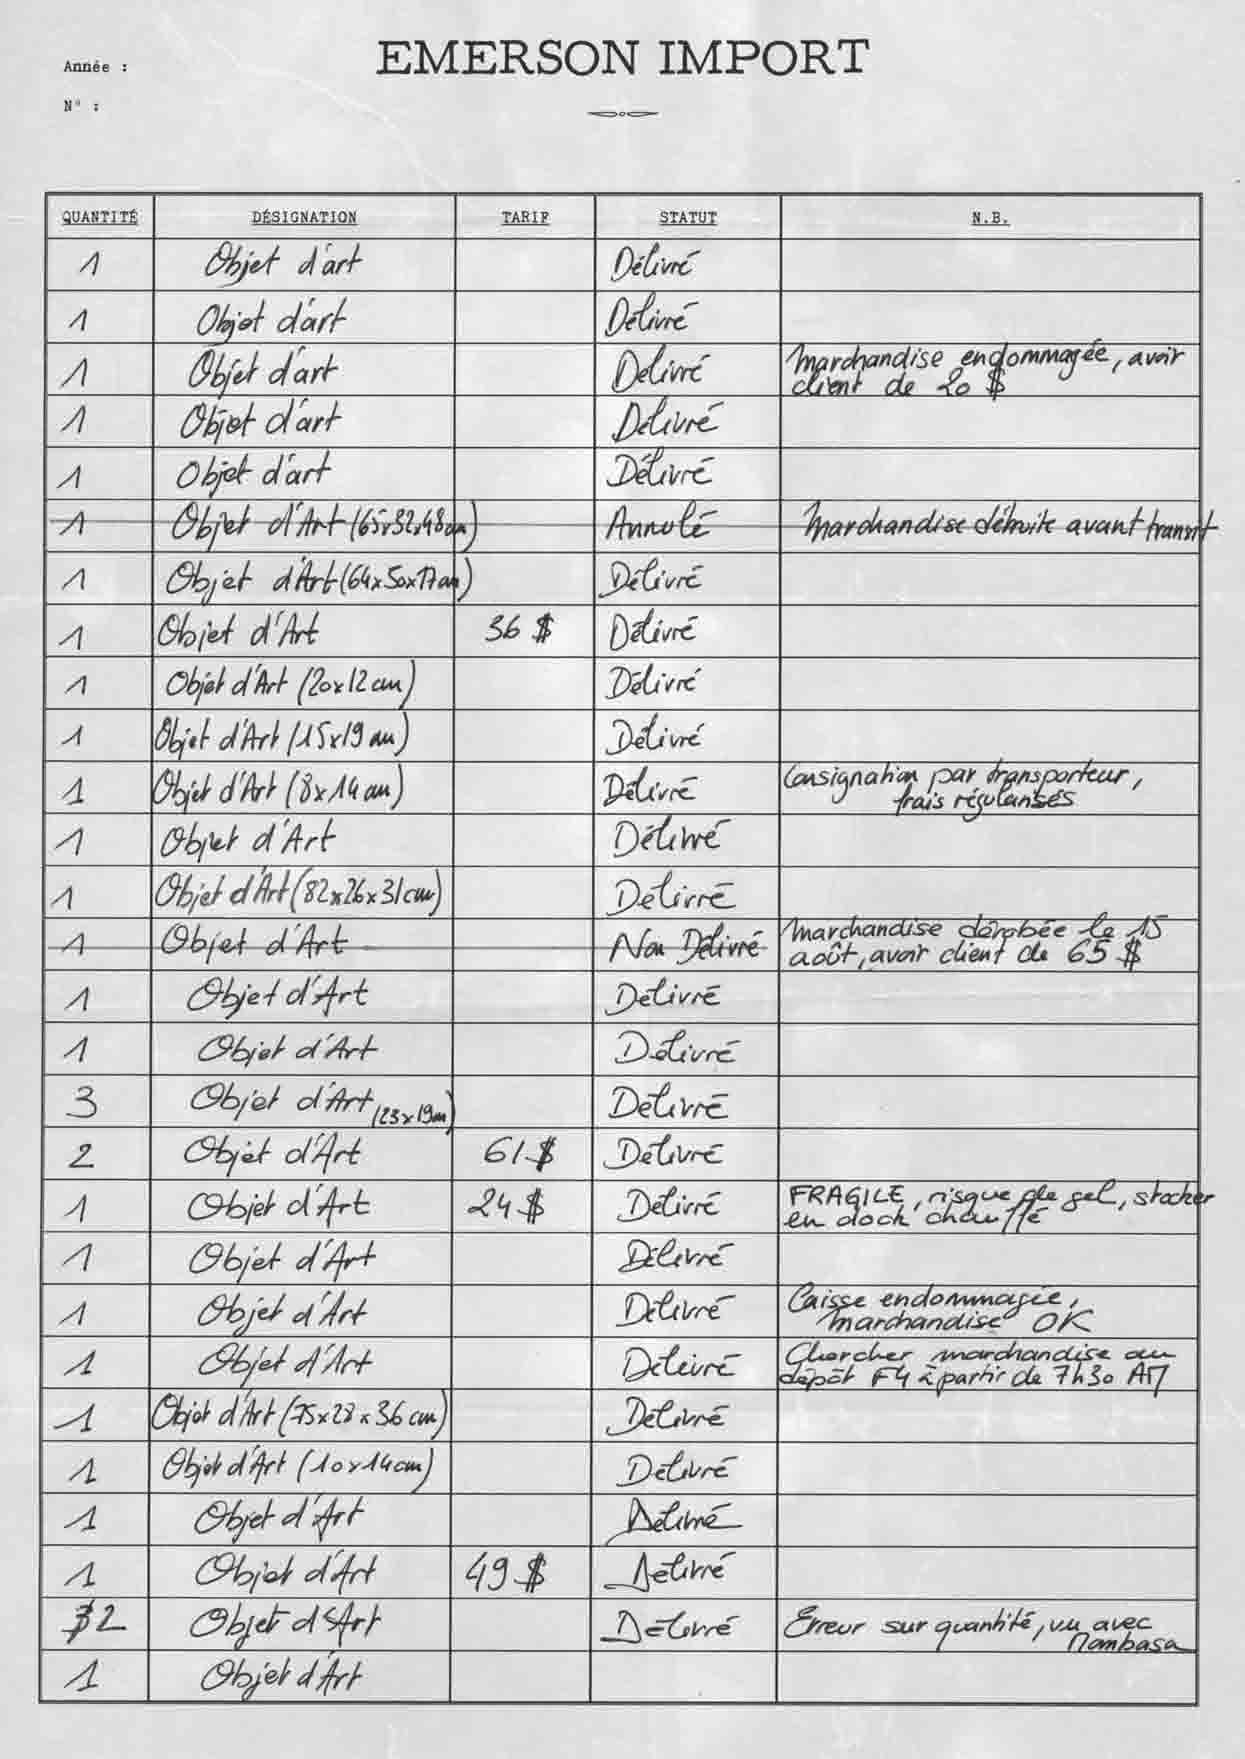 EMERSON IMPORT
Année :
N° :
QUANTITÉ DÉSIGNATION TARIF STATUT N.B.
1 Objet d'art Délivré
1 Objet d'art Délivré
1 Objet d'art Délivré Marchandise endommagée, avoir
client de 20 $
1 Objet d'art Délivré
1 Objet d'art Délivré
1 Objet d'Art (65x32x48cm) Annulé Marchandise détruite avant transit
1 Objet d'Art (64x50x17cm) Délivré
1 Objet d'Art 36 $ Délivré
1 Objet d'Art (20x12cm) Délivré
1 Objet d'Art (15x19cm) Délivré
1 Objet d'Art (8x14cm) Délivré Consignation par transporteur,
frais régularisés
1 Objet d'Art Délivré
1 Objet d'Art (82x26x31cm) Délivré
1 Objet d'Art Non Délivré Marchandise dérobée le 15
août, avoir client de 65 $
1 Objet d'Art Délivré
1 Objet d'Art Délivré
3 Objet d'Art (23x19cm) Délivré
2 Objet d'Art 61 $ Délivré
1 Objet d'Art 24 $ Délivré FRAGILE, risque de gel, stocker
en dock chauffé
1 Objet d'Art Délivré
1 Objet d'Art Délivré Caisse endommagée,
marchandise OK
1 Objet d'Art Délivré Chercher marchandise au
dépôt F4 à partir de 7h30 AM
1 Objet d'Art (75x28x36cm) Délivré
1 Objet d'Art (10x14cm) Délivré
1 Objet d'Art Délivré
1 Objet d'Art 49 $ Délivré
2 Objet d'Art Délivré Erreur sur quantité, vu avec
Mambasa
1 Objet d'Art